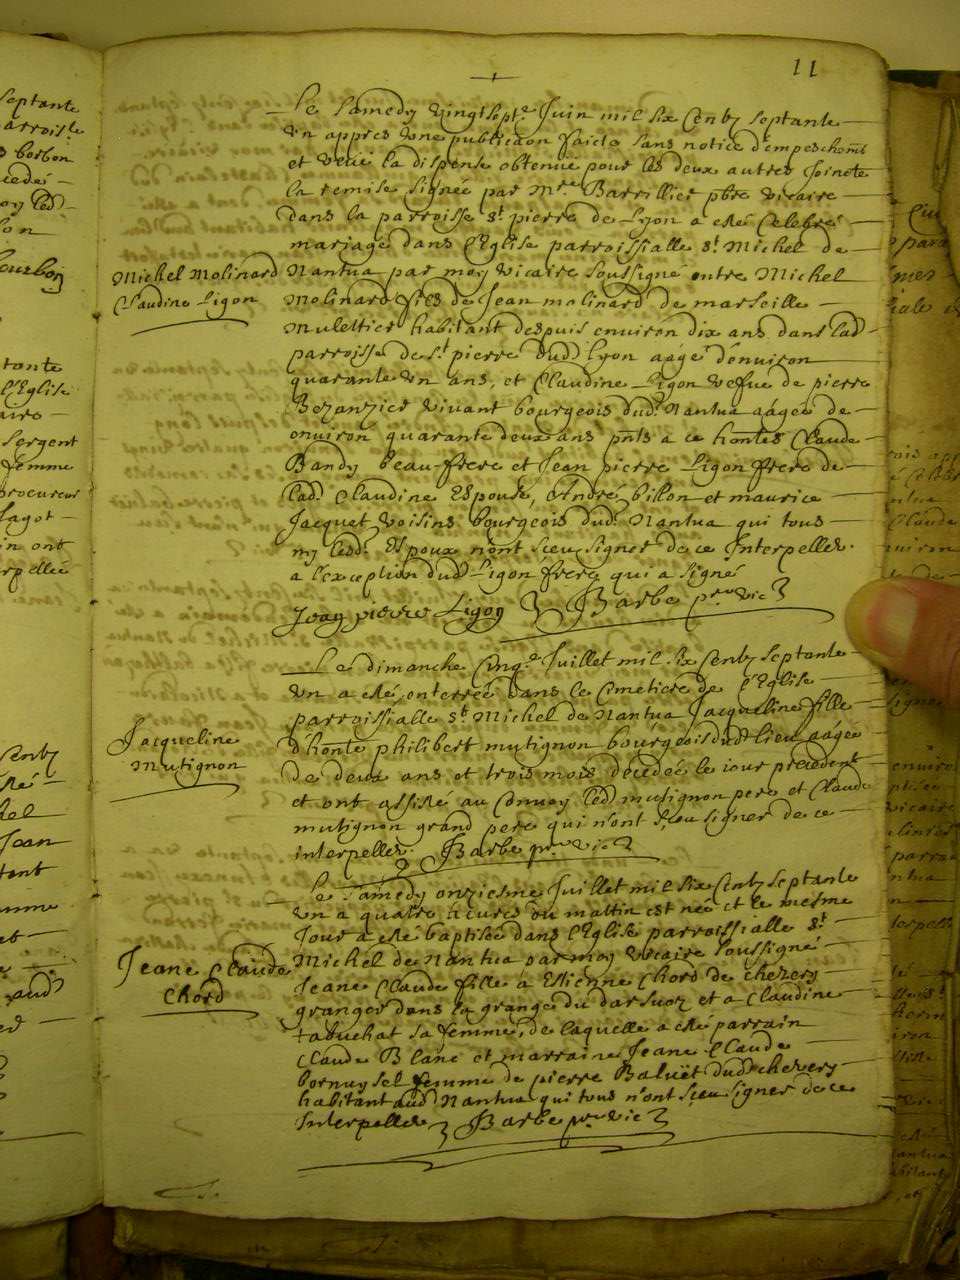 11
Le samedy vingtsept.e Juin mil six Centz septante
un appres une publicaon faicte sans notice d'empeschemt
et veüe la dispense obtenüe pour les deux autres Jointe
la remise signée par Mre Barrillier pbre vicaire
dans la parroisse st pierre de Lyon a esté Celebré
mariage dans l'Eglise parroissialle st Michel de
Michel Molinard
Claudine Ligon
Nantua par moy vicaire soussigné entre Michel
Molinard fils de Jean molinard de marseille
Mulettier habitant despuis environ dix ans dans lad
parroisse de st pierre dud Lyon aagé d'environ
quarante un ans, et Claudine Ligon vefve de pierre
vivant bourgeois dud Nantua aagée de
environ quarante deux ans pnts a ce hontes Claude
Bandy beau-frere et Jean pierre Ligon frere de
lad Claudine Espouse, André billon et maurice
Jacquet voisins bourgeois dud Nantua qui tous
ny lesd Espoux n'ont sceu signer de ce Interpellez
a l'exception dud Ligon frere qui a signé
Jean pierre Ligon Barbe pre vic
Le dimanche Cinqe Juillet mil six Centz septante
un a esté enterrée dans le Cimetiere de l'Eglise
parroissialle st Michel de Nantua Jacqueline fille
Jacqueline
Mutignon
d'honte philibert mutignon bourgeois dud lieu aagée
de deux ans et trois mois decedée le iour precedent
et ont assisté au Convoy led mutignon pere et Claude
mutignon grand pere qui n'ont sceu signer de ce
interpellez Barbe pre vic
Le samedy onziesme Juillet mil six Centz septante
un a quatre heures du mattin est née et le mesme
Jour a esté baptisée dans l'Eglise parroissialle st
Michel de Nantua par moy vicaire soussigné
Jeane Claude
Chord
Jeane Claude fille a Estienne Chord de chezery
granger dans la grange du et a Claudine
tabuchat sa femme, de laquelle a esté parrain
Claude Blanc et marraine Jeane Claude
femme de pierre Baluët dud chezery
habitant aud Nantua qui tous n'ont sceu signer de ce
Interpellez Barbe pre vic